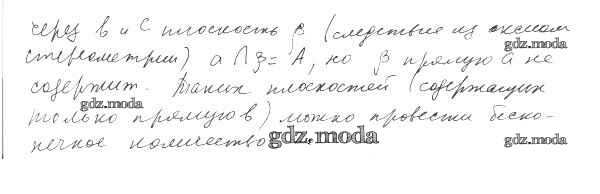 через b и C плоскость β (следствие из аксиом
стереометрии) a ∩ β = A, но β прямую a не
содержит. Таких плоскостей (содержащих
gdz.moda
gdz.moda
только прямую b) можно провести беско-
нечное количество
gdz.moda
gdz.moda